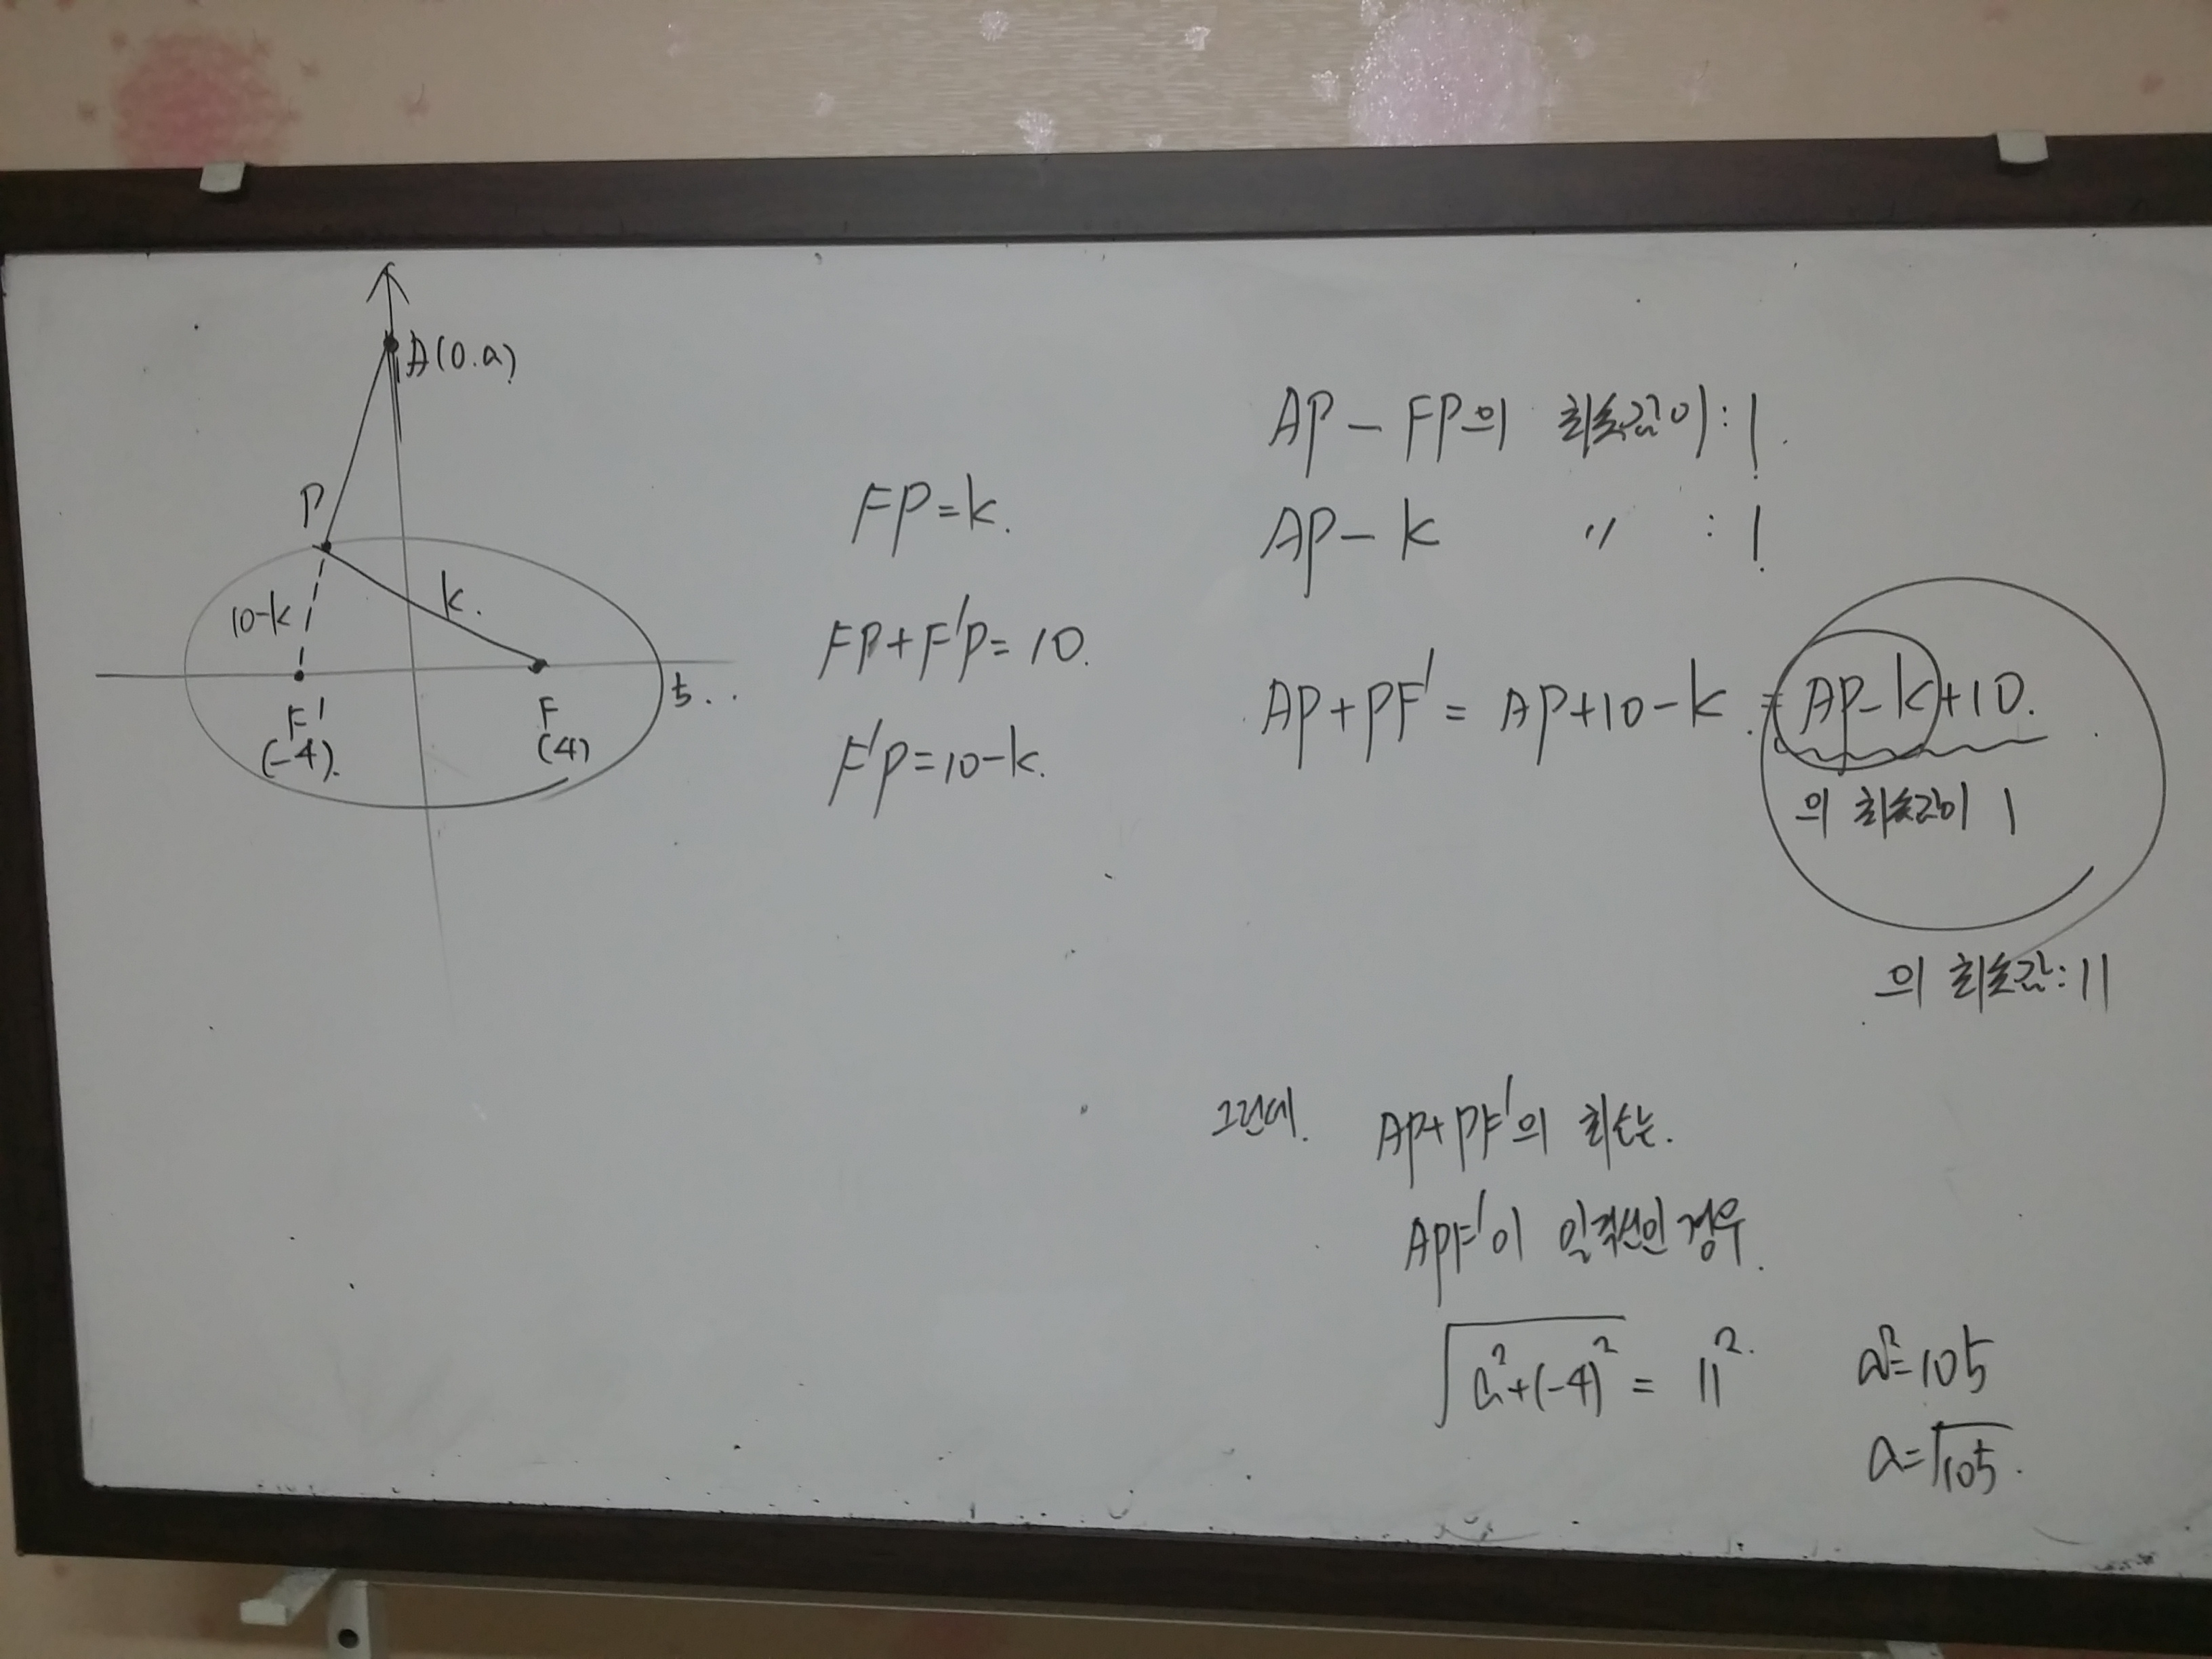 A(0.a)
P
10-k
k.
F'
(-4).
F
(4)
5..
FP=k.
FP+F'P=10.
F'P=10-k.
AP-FP의 최솟값이:1.
AP-k 〃 :1
AP+PF'= AP+10-k. =AP-k+10.
의 최솟값이 1
의 최솟값:11
그런데. AP+PF'의 최소는.
APF'이 일직선인 경우.
√a²+(-4)² = 11². a²=105
a=√105.